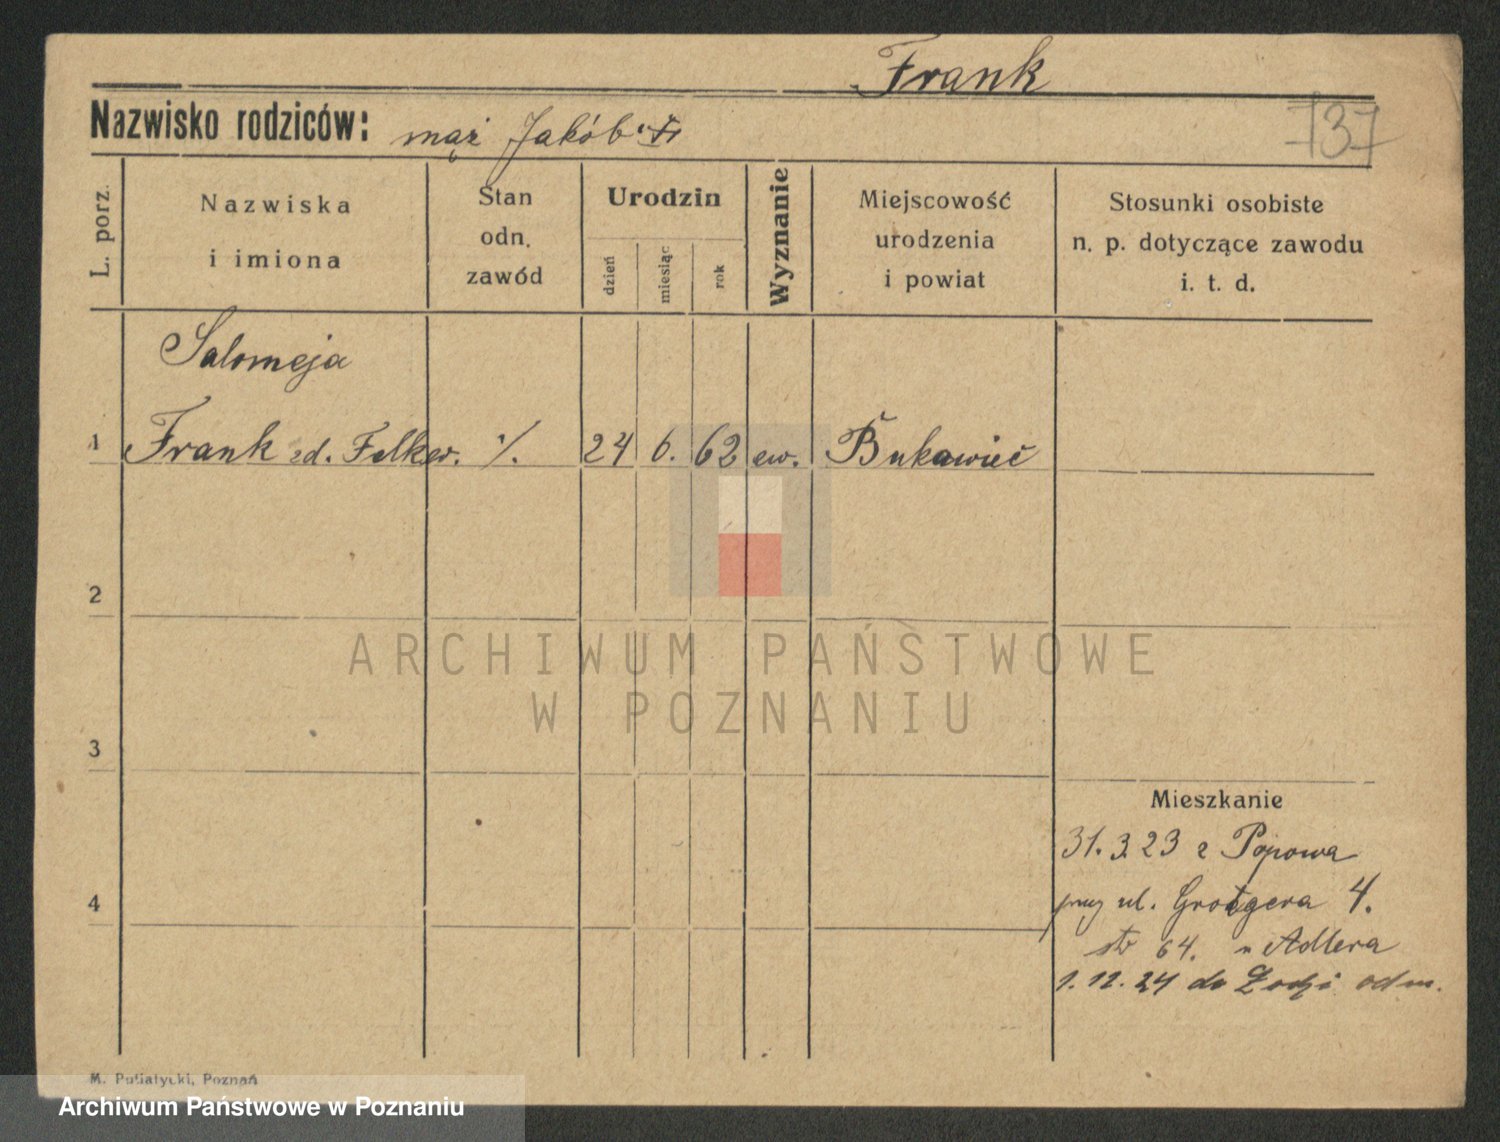 Frank
Nazwisko rodziców: mąż Jakób
137
L. porz.
Nazwiska
i imiona
Stan
odn.
zawód
Urodzin
dzień
miesiąc
rok
Wyznanie
Miejscowość
urodzenia
i powiat
Stosunki osobiste
n. p. dotyczące zawodu
i. t. d.
Salomeja
1 Frank zd. Felker. 24 6. 62 ew. Bukawieć
2
3
4
Mieszkanie
31.3.23 z Popowa
przy ul. Grotgera 4.
str 64. u Adlera
1.12.24 do Łodzi odm.
M. Putiatycki, Poznań
ARCHIWUM PAŃSTWOWE
W POZNANIU
Archiwum Państwowe w Poznaniu